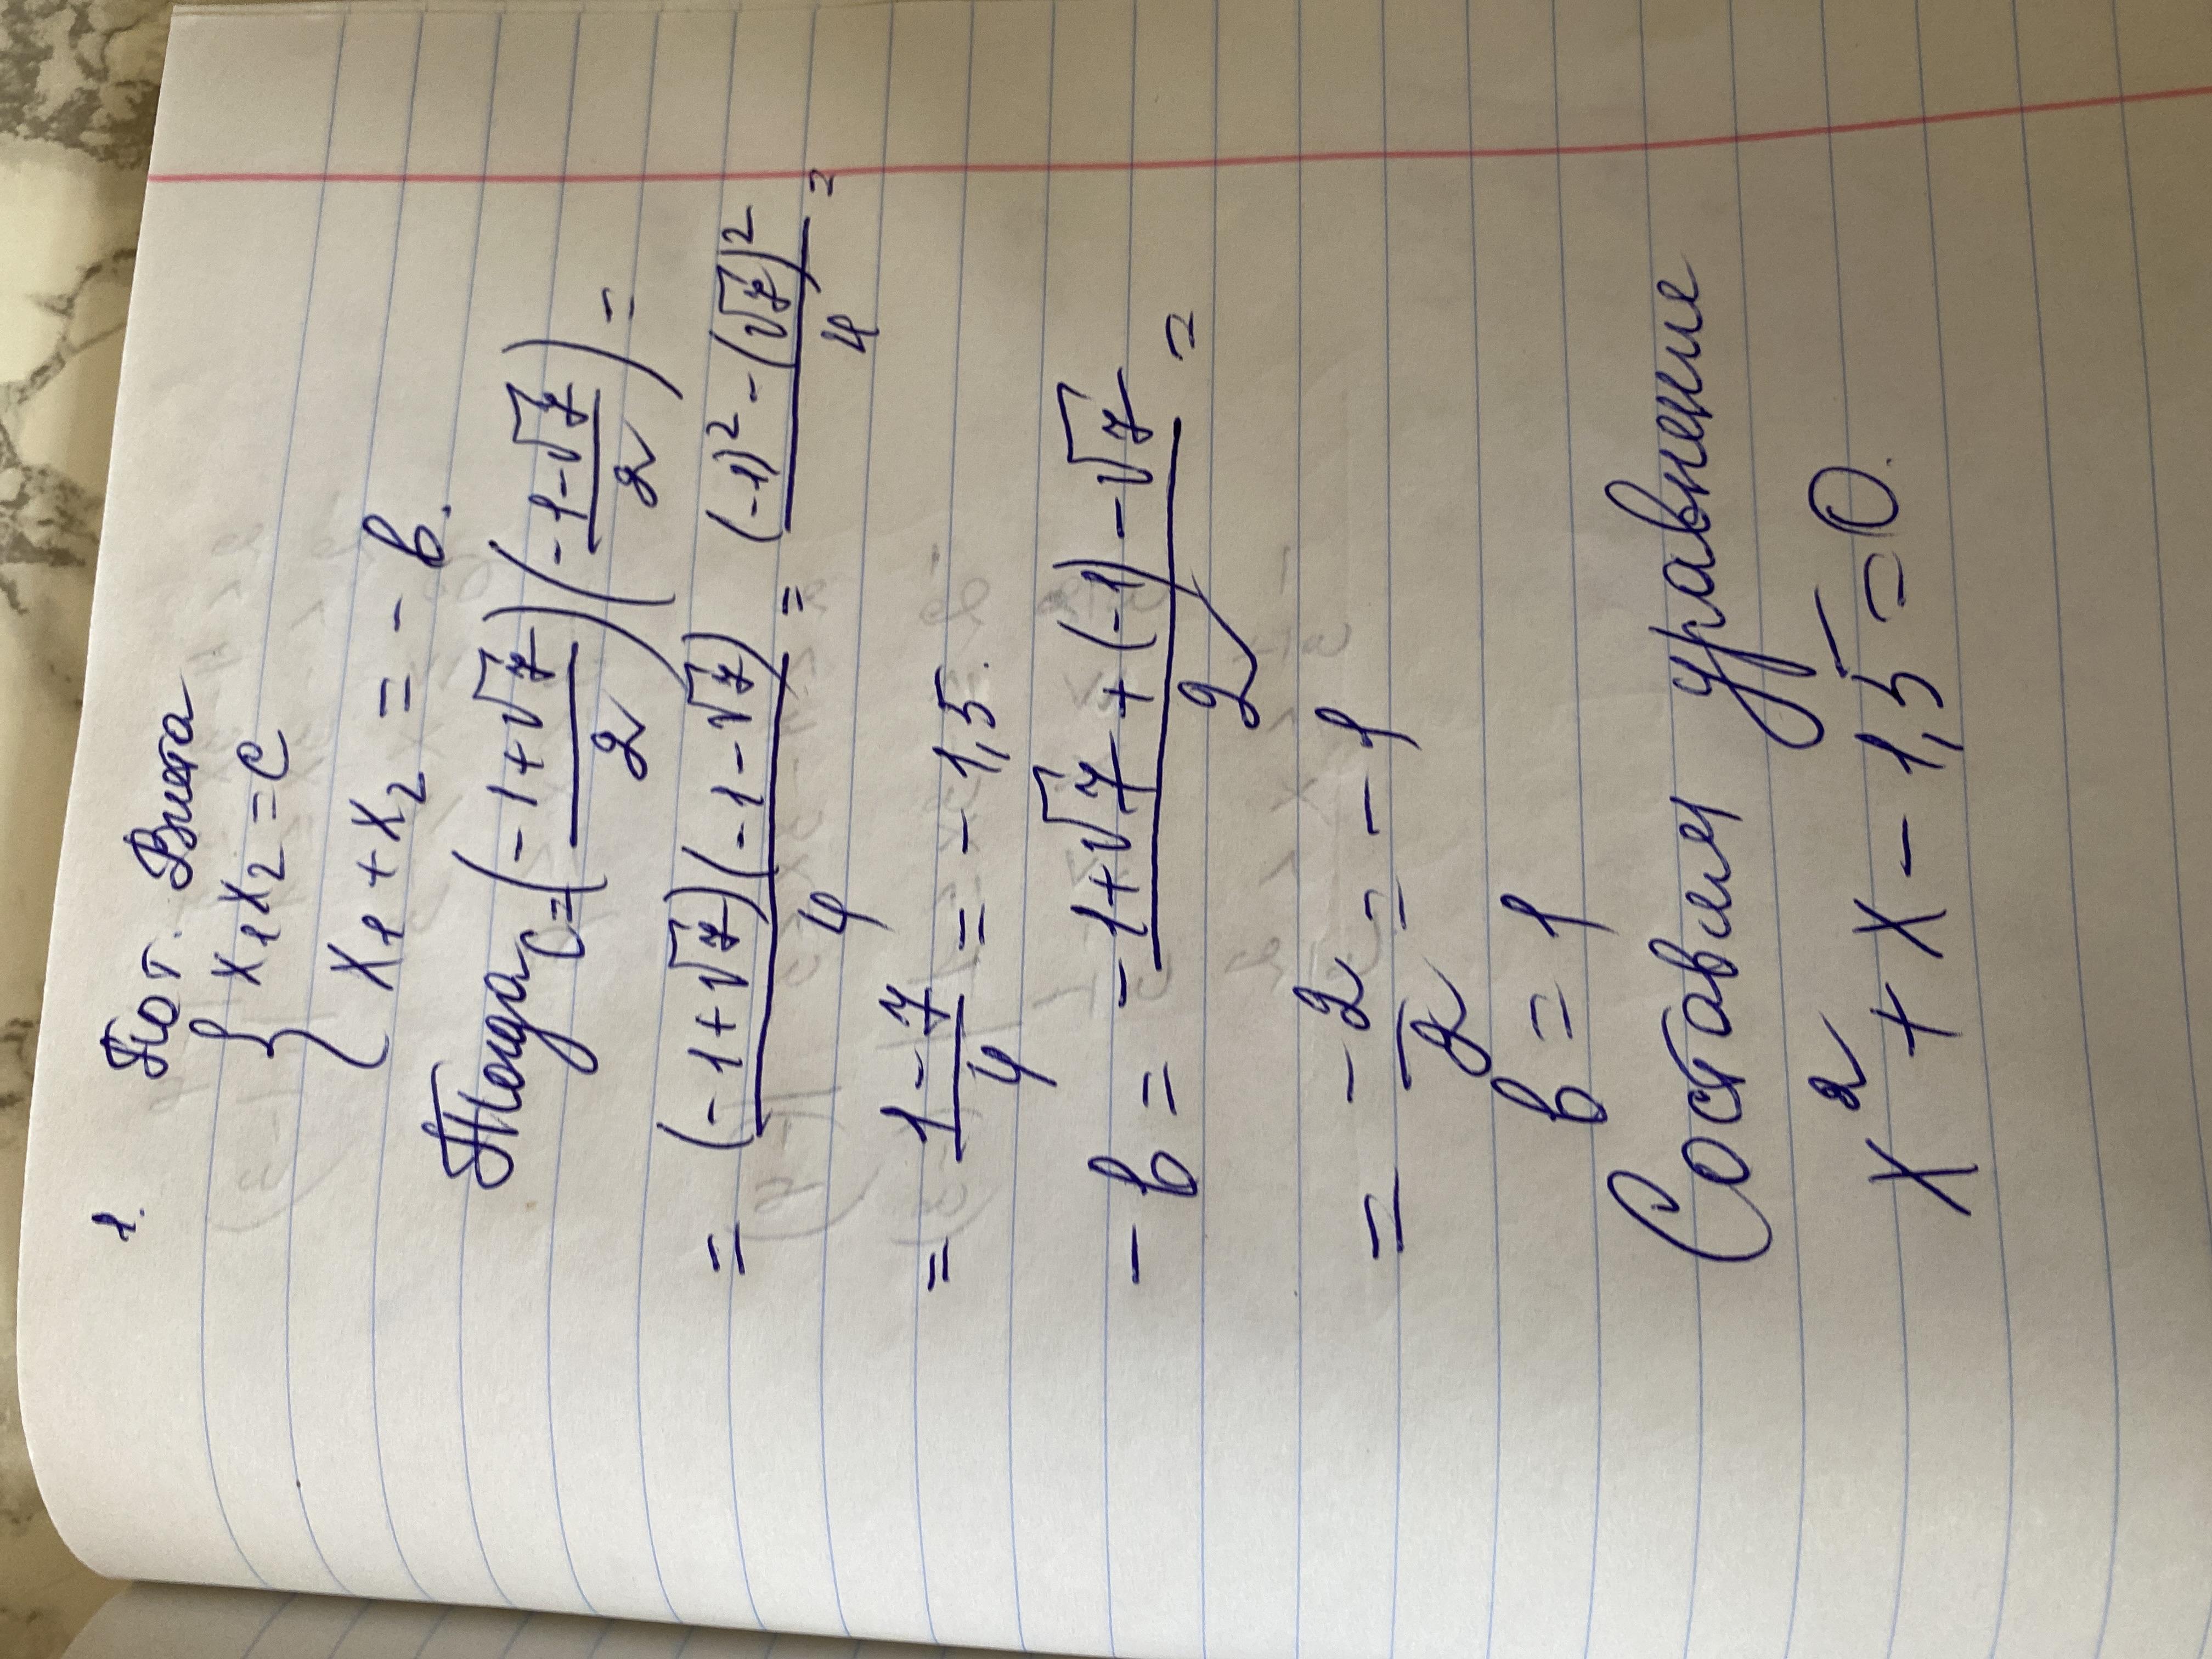 1. По т. Виета
{ x₁x₂ = c
x₁ + x₂ = - b.
Тогда c = ((-1+√7)/2)((-1-√7)/2) =
= (-1+√7)(-1-√7)/4 = ((-1)² - (√7)²)/4 =
= (1-7)/4 = -1,5.
- b = (-1+√7 + (-1) - √7)/2 =
= -2/2 = -1
b = 1
Составим уравнение
x² + x - 1,5 = 0.